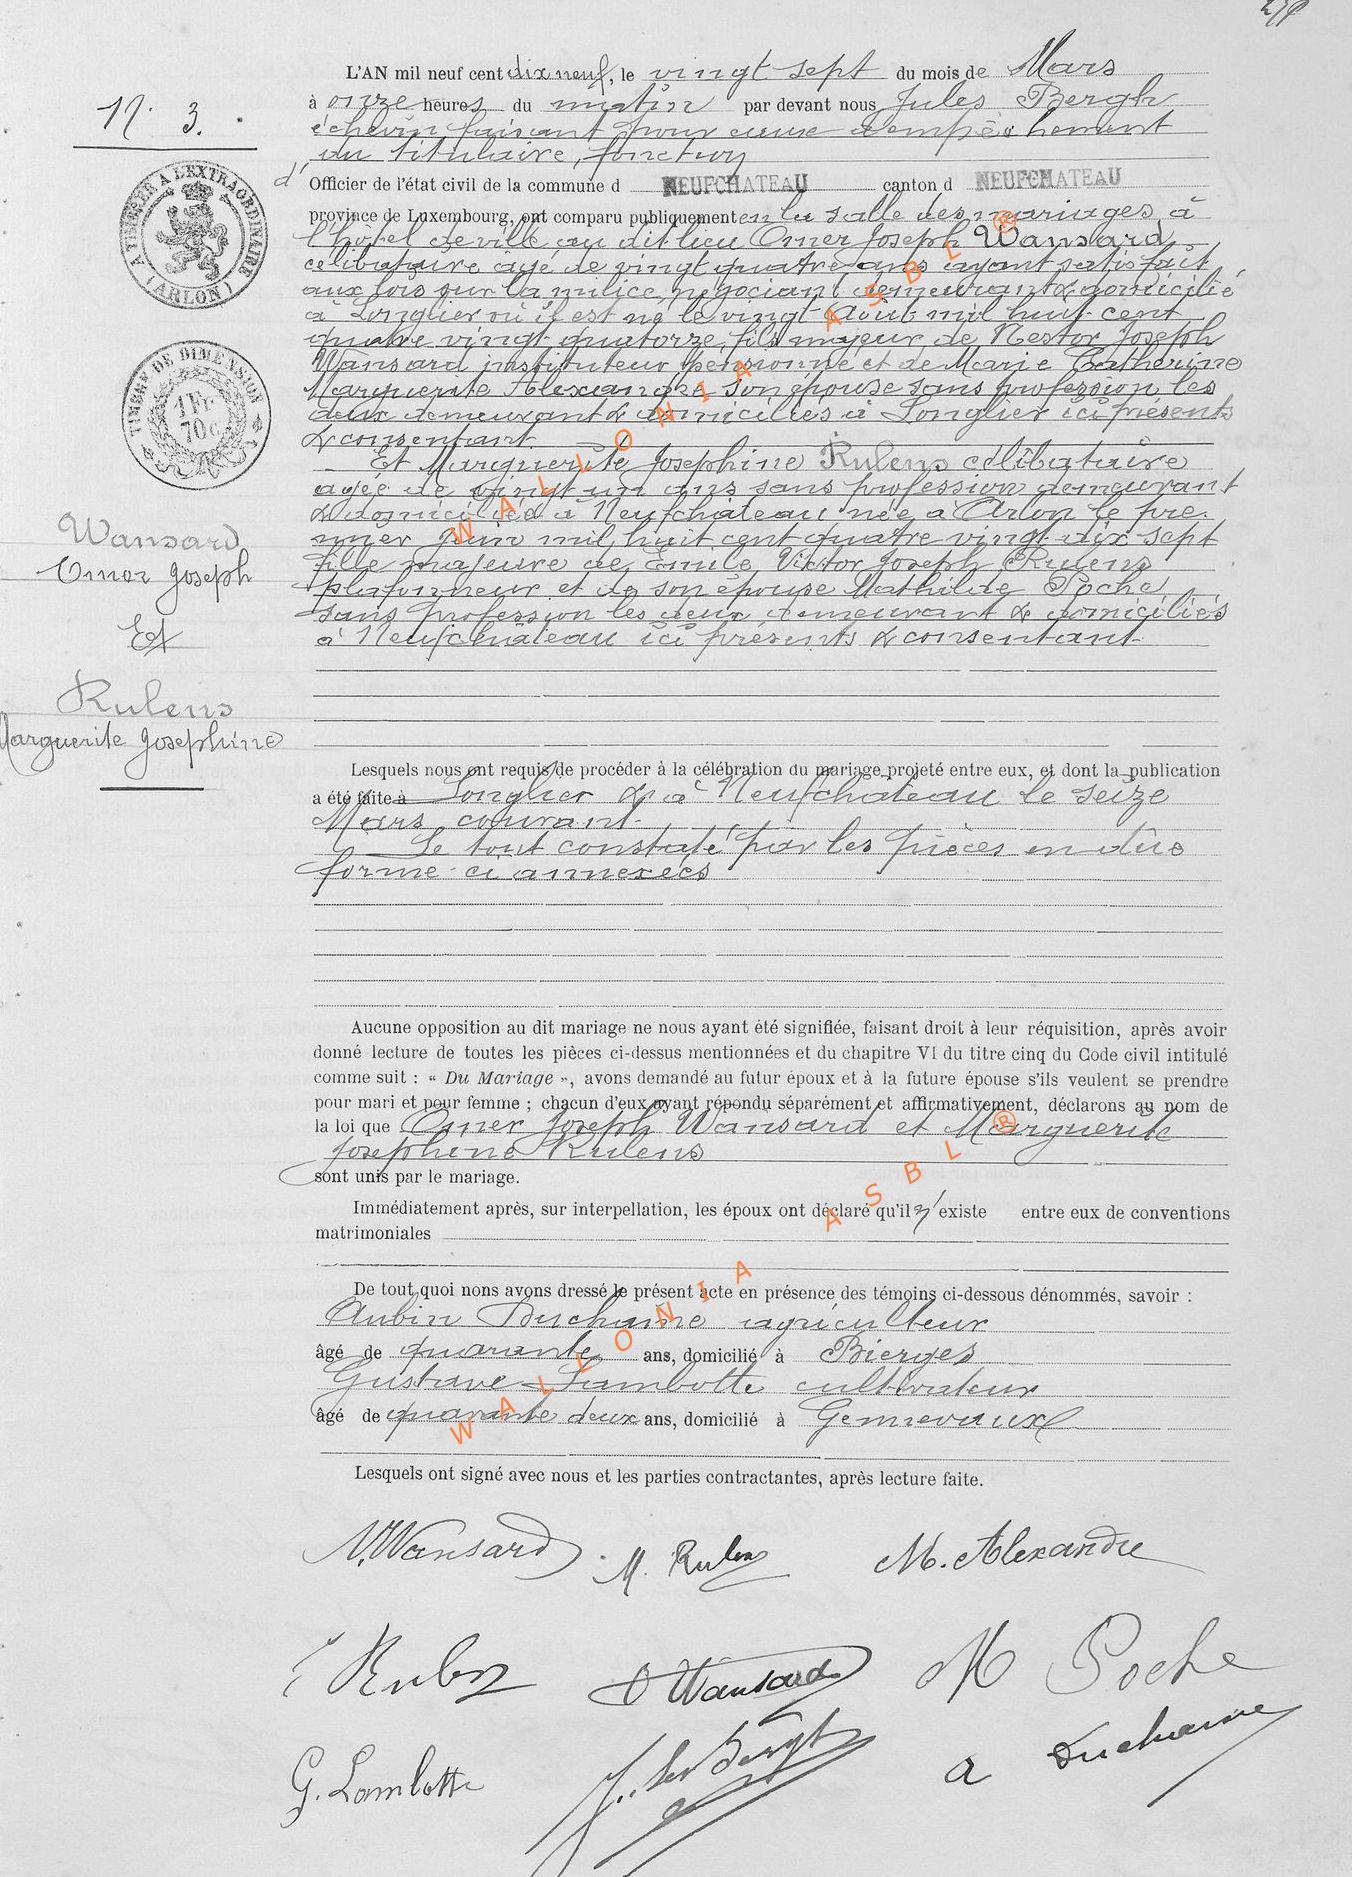 N. 3.
L'AN mil neuf cent dix neuf, le vingt sept du mois de Mars
à onze heures du matin par devant nous Jules Bergh
échevin faisant pour cause d'empêchement
du titulaire, fonction
d'Officier de l'état civil de la commune d NEUFCHATEAU canton d NEUFCHATEAU
province de Luxembourg, ont comparu publiquement en la salle des mariages à
l'hôtel de ville au dit lieu Omer Joseph Wansard
célibataire âgé de vingt quatre ans ayant satisfait
aux lois sur la milice, négociant demeurant & domicilié
à Longlier où il est né le vingt Août mil huit cent
quatre vingt quatorze, fils majeur de Nestor Joseph
Wansard instituteur pensionné et de Marie Catherine
Marguerite Alexandre son épouse sans profession les
deux demeurant & domiciliés à Longlier ici présents
& consentant
Et Marguerite Josephine Rulens célibataire
agée de vingt un ans sans profession demeurant
& domiciliée à Neufchâteau née à Arlon le pre-
mier Juin mil huit cent quatre vingt dix sept
fille majeure de Emile Victor Joseph Rulens
plafonneur et de son épouse Mathilde Poche
sans profession les deux demeurant & domiciliés
à Neufchâteau ici présents & consentant
A TIMBRER A L'EXTRAORDINAIRE
(ARLON)
TIMBRE DE DIMENSION
1 Fr.
70 c
Wansard
Omer Joseph
Et
Rulens
Marguerite Josephine
Lesquels nous ont requis de procéder à la célébration du mariage projeté entre eux, et dont la publication
a été faite à Longlier & à Neufchâteau le seize
Mars courant.
Le tout constaté par les pièces en due
forme ci annexées
Aucune opposition au dit mariage ne nous ayant été signifiée, faisant droit à leur réquisition, après avoir
donné lecture de toutes les pièces ci-dessus mentionnées et du chapitre VI du titre cinq du Code civil intitulé
comme suit : « Du Mariage », avons demandé au futur époux et à la future épouse s'ils veulent se prendre
pour mari et pour femme ; chacun d'eux ayant répondu séparément et affirmativement, déclarons au nom de
la loi que Omer Joseph Wansard et Marguerite
Josephine Rulens
sont unis par le mariage.
Immédiatement après, sur interpellation, les époux ont déclaré qu'il n'existe entre eux de conventions
matrimoniales
De tout quoi nons avons dressé le présent acte en présence des témoins ci-dessous dénommés, savoir :
Aubin Duchaine agriculteur
âgé de quarante ans, domicilié à Bierges
Gustave Lambotte cultivateur
âgé de quarante deux ans, domicilié à Gennevaux
Lesquels ont signé avec nous et les parties contractantes, après lecture faite.
N. Wansard M. Rulens M. Alexandre
E Rulens O Wansard M Poche
G. Lambotte A Duchaine
WALLONIA ASBL ®
WALLONIA ASBL ®